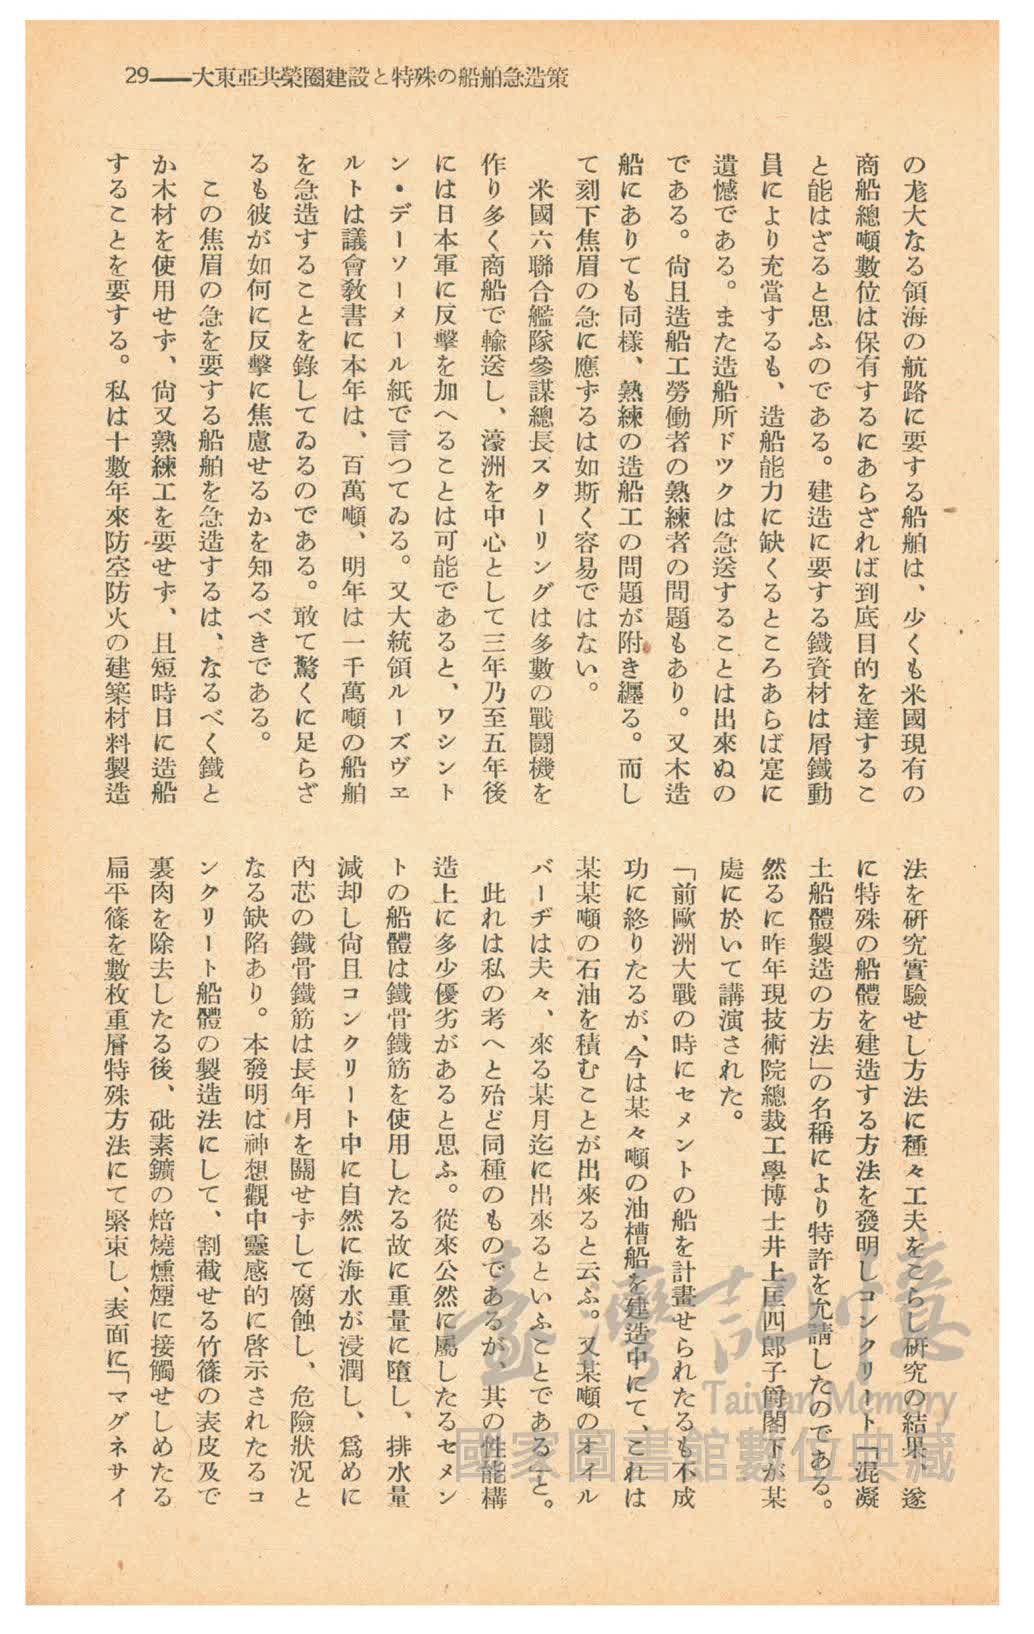 29——大東亞共榮圈建設と特殊の船舶急造策
の尨大なる領海の航路に要する船舶は、少くも米國現有の
商船總噸數位は保有するにあらざれば到底目的を達するこ
と能はざると思ふのである。建造に要する鐵資材は屑鐵動
員により充當するも、造船能力に缺くるところあらば寔に
遺憾である。また造船所ドツクは急送することは出來ぬの
である。尙且造船工勞働者の熟練者の問題もあり。又木造
船にありても同樣、熟練の造船工の問題が附き纒る。而し
て刻下焦眉の急に應ずるは如斯く容易ではない。
米國六聯合艦隊參謀總長スターリングは多數の戰鬪機を
作り多く商船で輸送し、濠洲を中心として三年乃至五年後
には日本軍に反擊を加へることは可能であると、ワシント
ン・デーソーメール紙で言つてゐる。又大統領ルーズヴエ
ルトは議會敎書に本年は、百萬噸、明年は一千萬噸の船舶
を急造することを錄してゐるのである。敢て驚くに足らざ
るも彼が如何に反擊に焦慮せるかを知るべきである。
この焦眉の急を要する船舶を急造するは、なるべく鐵と
か木材を使用せず、尙又熟練工を要せず、且短時日に造船
することを要する。私は十數年來防空防火の建築材料製造
法を硏究實驗せし方法に種々工夫をこらし硏究の結果、遂
に特殊の船體を建造する方法を發明しコンクリート「混凝
土船體製造の方法」の名稱により特許を允請したのである。
然るに昨年現技術院總裁工學博士井上匡四郎子爵閣下が某
處に於いて講演された。
「前歐洲大戰の時にセメントの船を計畫せられたるも不成
功に終りたるが、今は某々噸の油槽船を建造中にて、これは
某某噸の石油を積むことが出來ると云ふ。又某噸のオイル
バーヂは夫々、來る某月迄に出來るといふことである」と。
此れは私の考へと殆ど同種のものであるが、其の性能構
造上に多少優劣があると思ふ。從來公然に屬したるセメン
トの船體は鐵骨鐵筋を使用したる故に重量に墮し、排水量
減却し尙且コンクリート中に自然に海水が浸潤し、爲めに
內芯の鐵骨鐵筋は長年月を關せずして腐蝕し、危險狀況と
なる缺陷あり。本發明は神想觀中靈感的に啓示されたるコ
ンクリート船體の製造法にして、割截せる竹篠の表皮及で
裏肉を除去したる後、砒素鑛の焙燒燻煙に接觸せしめたる
扁平篠を數枚重層特殊方法にて緊束し、表面に「マグネサイ
臺灣記憶
Taiwan Memory
國家圖書館數位典藏